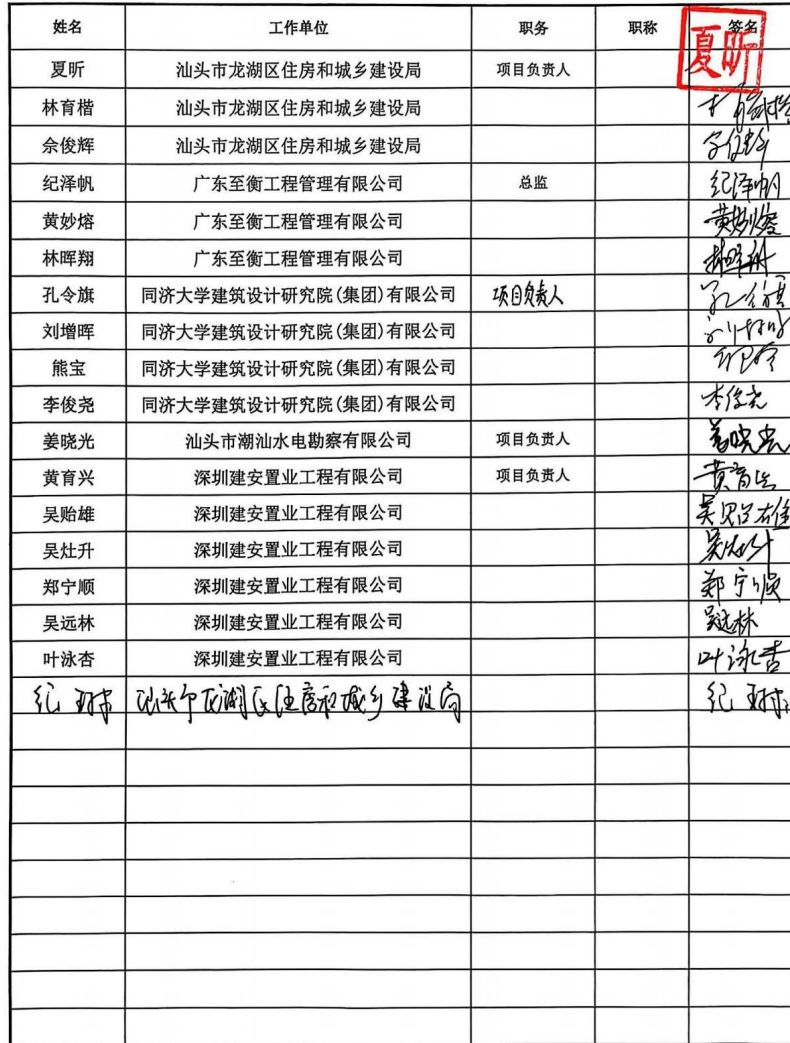 姓名 工作单位 职务 职称 签名
夏昕 汕头市龙湖区住房和城乡建设局 项目负责人 夏昕
林育楷 汕头市龙湖区住房和城乡建设局
佘俊辉 汕头市龙湖区住房和城乡建设局 佘俊辉
纪泽帆 广东至衡工程管理有限公司 总监 纪泽帆
黄妙熔 广东至衡工程管理有限公司 黄妙熔
林晖翔 广东至衡工程管理有限公司 林晖翔
孔令旗 同济大学建筑设计研究院(集团)有限公司 项目负责人 孔令旗
刘增晖 同济大学建筑设计研究院(集团)有限公司
熊宝 同济大学建筑设计研究院(集团)有限公司
李俊尧 同济大学建筑设计研究院(集团)有限公司 李俊尧
姜晓光 汕头市潮汕水电勘察有限公司 项目负责人 姜晓光
黄育兴 深圳建安置业工程有限公司 项目负责人 黄育兴
吴贻雄 深圳建安置业工程有限公司 吴贻雄
吴灶升 深圳建安置业工程有限公司 吴灶升
郑宁顺 深圳建安置业工程有限公司 郑宁顺
吴远林 深圳建安置业工程有限公司 吴远林
叶泳杏 深圳建安置业工程有限公司 叶泳杏
纪 汕头市龙湖区住房和城乡建设局 纪